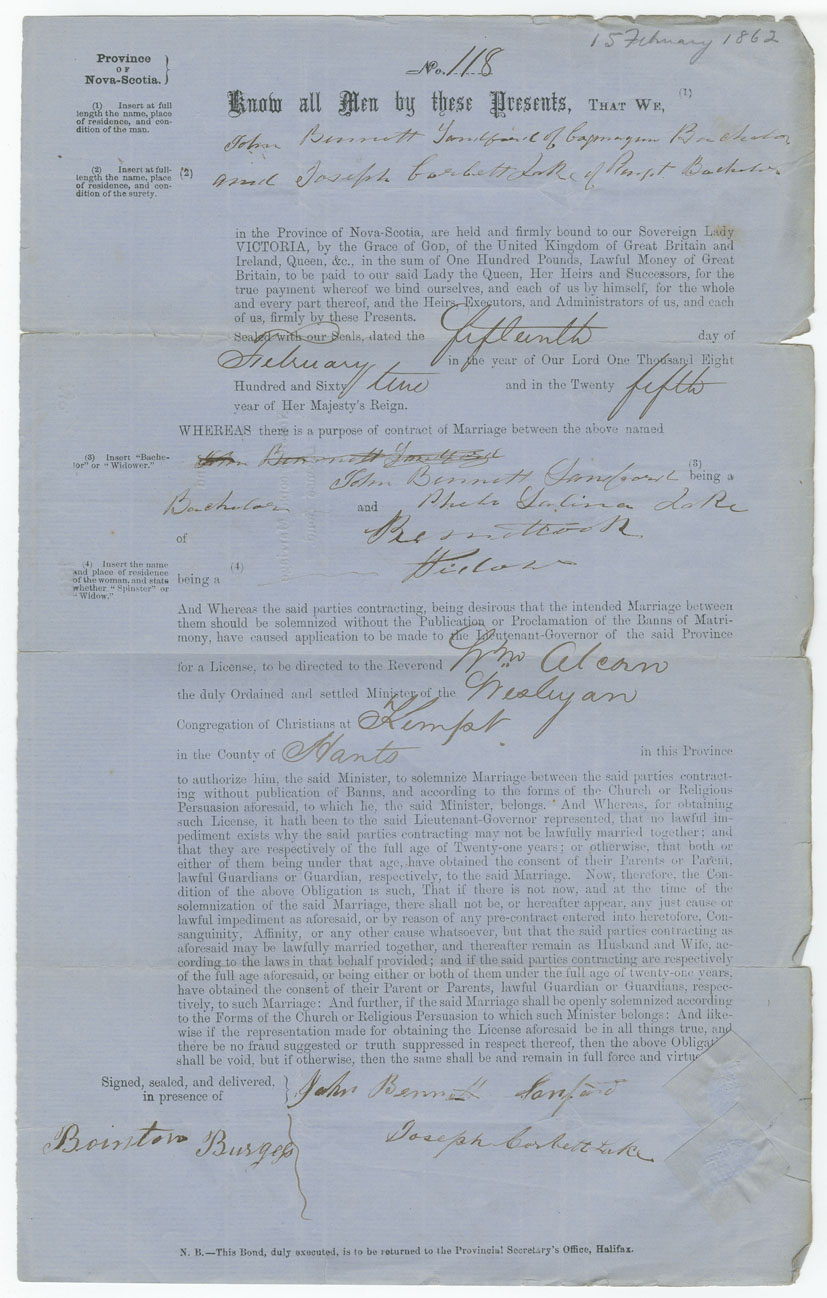 15 February 1862
Province
OF
Nova-Scotia.
No. 118
(1) Insert at full
length the name, place
of residence, and con-
dition of the man.
Know all Men by these Presents, THAT WE, (1)
John Bennett Sandford of Bachelor
(2) Insert at full-
length the name, place
of residence, and con-
dition of the surety.
(2) and Joseph Corbett Lake of Kempt Bachelor
in the Province of Nova-Scotia, are held and firmly bound to our Sovereign Lady
VICTORIA, by the Grace of GOD, of the United Kingdom of Great Britain and
Ireland, Queen, &c., in the sum of One Hundred Pounds, Lawful Money of Great
Britain, to be paid to our said Lady the Queen, Her Heirs and Successors, for the
true payment whereof we bind ourselves, and each of us by himself, for the whole
and every part thereof, and the Heirs, Executors, and Administrators of us, and each
of us, firmly by these Presents.
Sealed with our Seals, dated the fifteenth day of
February in the year of Our Lord One Thousand Eight
Hundred and Sixty two and in the Twenty fifth
year of Her Majesty's Reign.
WHEREAS there is a purpose of contract of Marriage between the above named
(3) Insert "Bache-
lor" or "Widower."
John Bennett Sandford
John Bennett Sandford (3) being a
Bachelor and Lake
of
(4) Insert the name
and place of residence
of the woman, and state
whether "Spinster" or
"Widow."
being a (4) Widow
And Whereas the said parties contracting, being desirous that the intended Marriage between
them should be solemnized without the Publication or Proclamation of the Banns of Matri-
mony, have caused application to be made to the Lieutenant-Governor of the said Province
for a License, to be directed to the Reverend Wm Alcorn
the duly Ordained and settled Minister of the Wesleyan
Congregation of Christians at Kempt
in the County of Hants in this Province
to authorize him, the said Minister, to solemnize Marriage between the said parties contract-
ing without publication of Banns, and according to the forms of the Church or Religious
Persuasion aforesaid, to which he, the said Minister, belongs. And Whereas, for obtaining
such License, it hath been to the said Lieutenant-Governor represented, that no lawful im-
pediment exists why the said parties contracting may not be lawfully married together; and
that they are respectively of the full age of Twenty-one years; or otherwise, that both or
either of them being under that age, have obtained the consent of their Parents or Parent,
lawful Guardians or Guardian, respectively, to the said Marriage. Now, therefore, the Con-
dition of the above Obligation is such, That if there is not now, and at the time of the
solemnization of the said Marriage, there shall not be, or hereafter appear, any just cause or
lawful impediment as aforesaid, or by reason of any pre-contract entered into heretofore, Con-
sanguinity, Affinity, or any other cause whatsoever, but that the said parties contracting as
aforesaid may be lawfully married together, and thereafter remain as Husband and Wife, ac-
cording to the laws in that behalf provided; and if the said parties contracting are respectively
of the full age aforesaid, or being either or both of them under the full age of twenty-one years,
have obtained the consent of their Parent or Parents, lawful Guardian or Guardians, respec-
tively, to such Marriage: And further, if the said Marriage shall be openly solemnized according
to the Forms of the Church or Religious Persuasion to which such Minister belongs: And like-
wise if the representation made for obtaining the License aforesaid be in all things true, and
there be no fraud suggested or truth suppressed in respect thereof, then the above Obligation
shall be void, but if otherwise, then the same shall be and remain in full force and virtue
Signed, sealed, and delivered,
in presence of
John Bennett Sanford
Bointon Burgess
Joseph Corbett Lake
N. B.—This Bond, duly executed, is to be returned to the Provincial Secretary's Office, Halifax.